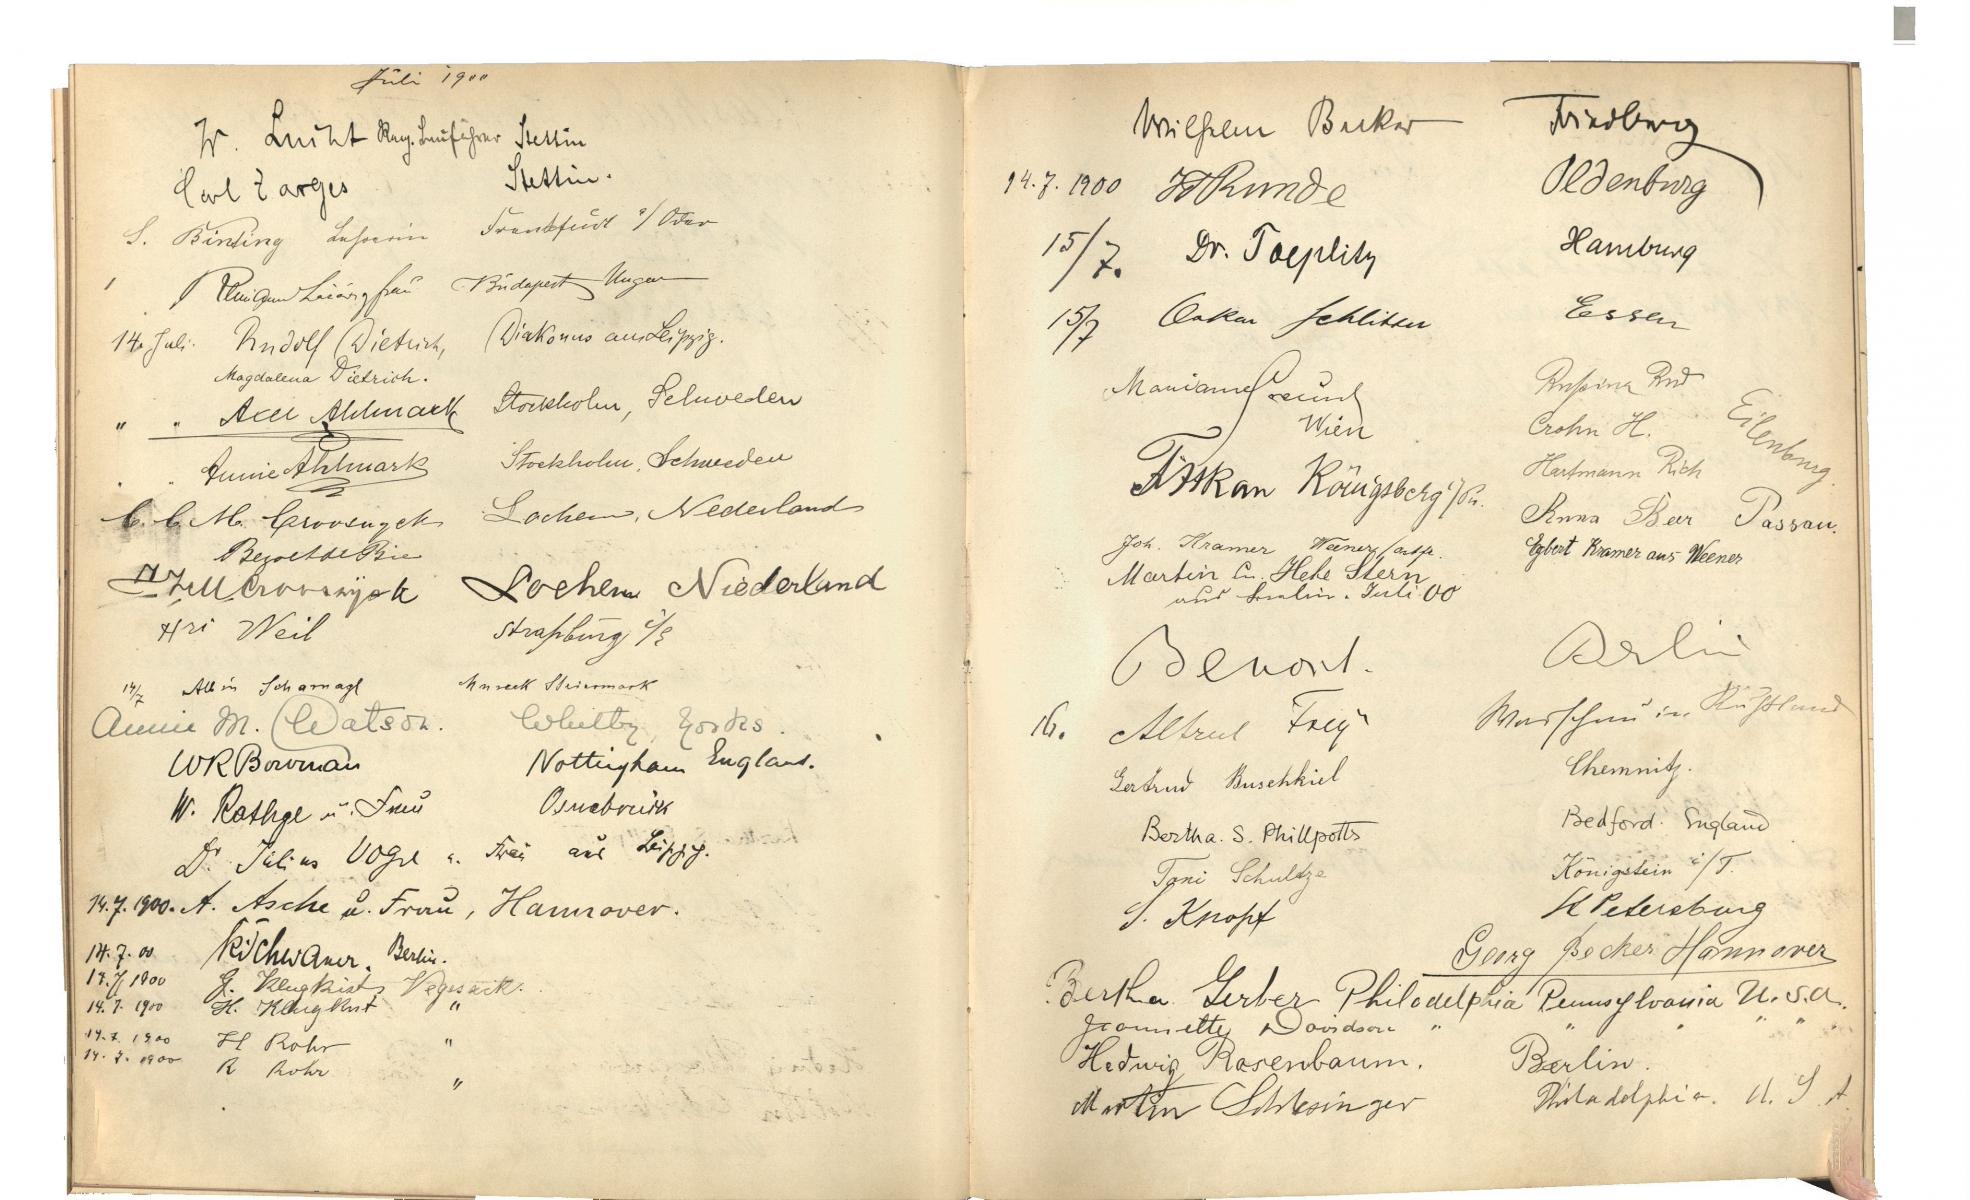 Juli 1900
W. Lucht Reg. Bauführer Stettin
Carl Zarges Stettin.
S. Binting Lehrerin Frankfurt a/Oder
frau Budapest Ungarn
14. Juli. Rudolf Dietrich, Diakonus aus Leipzig.
Magdalena Dietrich.
" " Axel Ahlmark Stockholm, Schweden
" " Annie Ahlmark Stockholm, Schweden
C. C. M. Lochem, Nederland
Lochem Niederland
Hri Weil Straßburg i/E
14/7 Scharnagl Mureck Steiermark
Annie M. Watson. Whitby, Yorks.
WR Bowman Nottingham England.
W. Rathge u. Frau Osnabrück
Dr. Julius Vogel u. Frau aus Leipzig.
14.7.1900. A. Asche u. Frau, Hannover.
14.7.00 Berlin.
14.7.1900 G. Klugkist Vegesack.
14.7.1900 H. Klugkist "
14.7.1900 H Rohr "
14.7.1900 R Rohr "
Wilhelm Becker Friedberg
14.7.1900 Runde Oldenburg
15/7. Dr. Toeplitz Hamburg
15/7 Oskar Schlitter Essen
Marianne Freund
Wien
Rnd
Crohn H.
Hartmann Rich
Eilenburg
Königsberg i/Pr.
Anna Beer Passau.
Joh. Kramer Weener/ostfr.
Egbert Kramer aus Weener
Martin u. Hete Stern
aus Berlin. Juli 00
Berlin
16. Alfred Frey Warschau in Rußland
Gertrud Buschkiel Chemnitz.
Bertha. S. Phillpotts Bedford. England
Toni Schultze Königstein i/T.
S. Knopf St Petersburg
Georg Becker Hannover
Bertha Gerber Philadelphia Pennsylvania U.S.A.
Jeannette Davidson " " " " "
Hedwig Rosenbaum. Berlin.
Martin Schlesinger Philadelphia. U. S. A